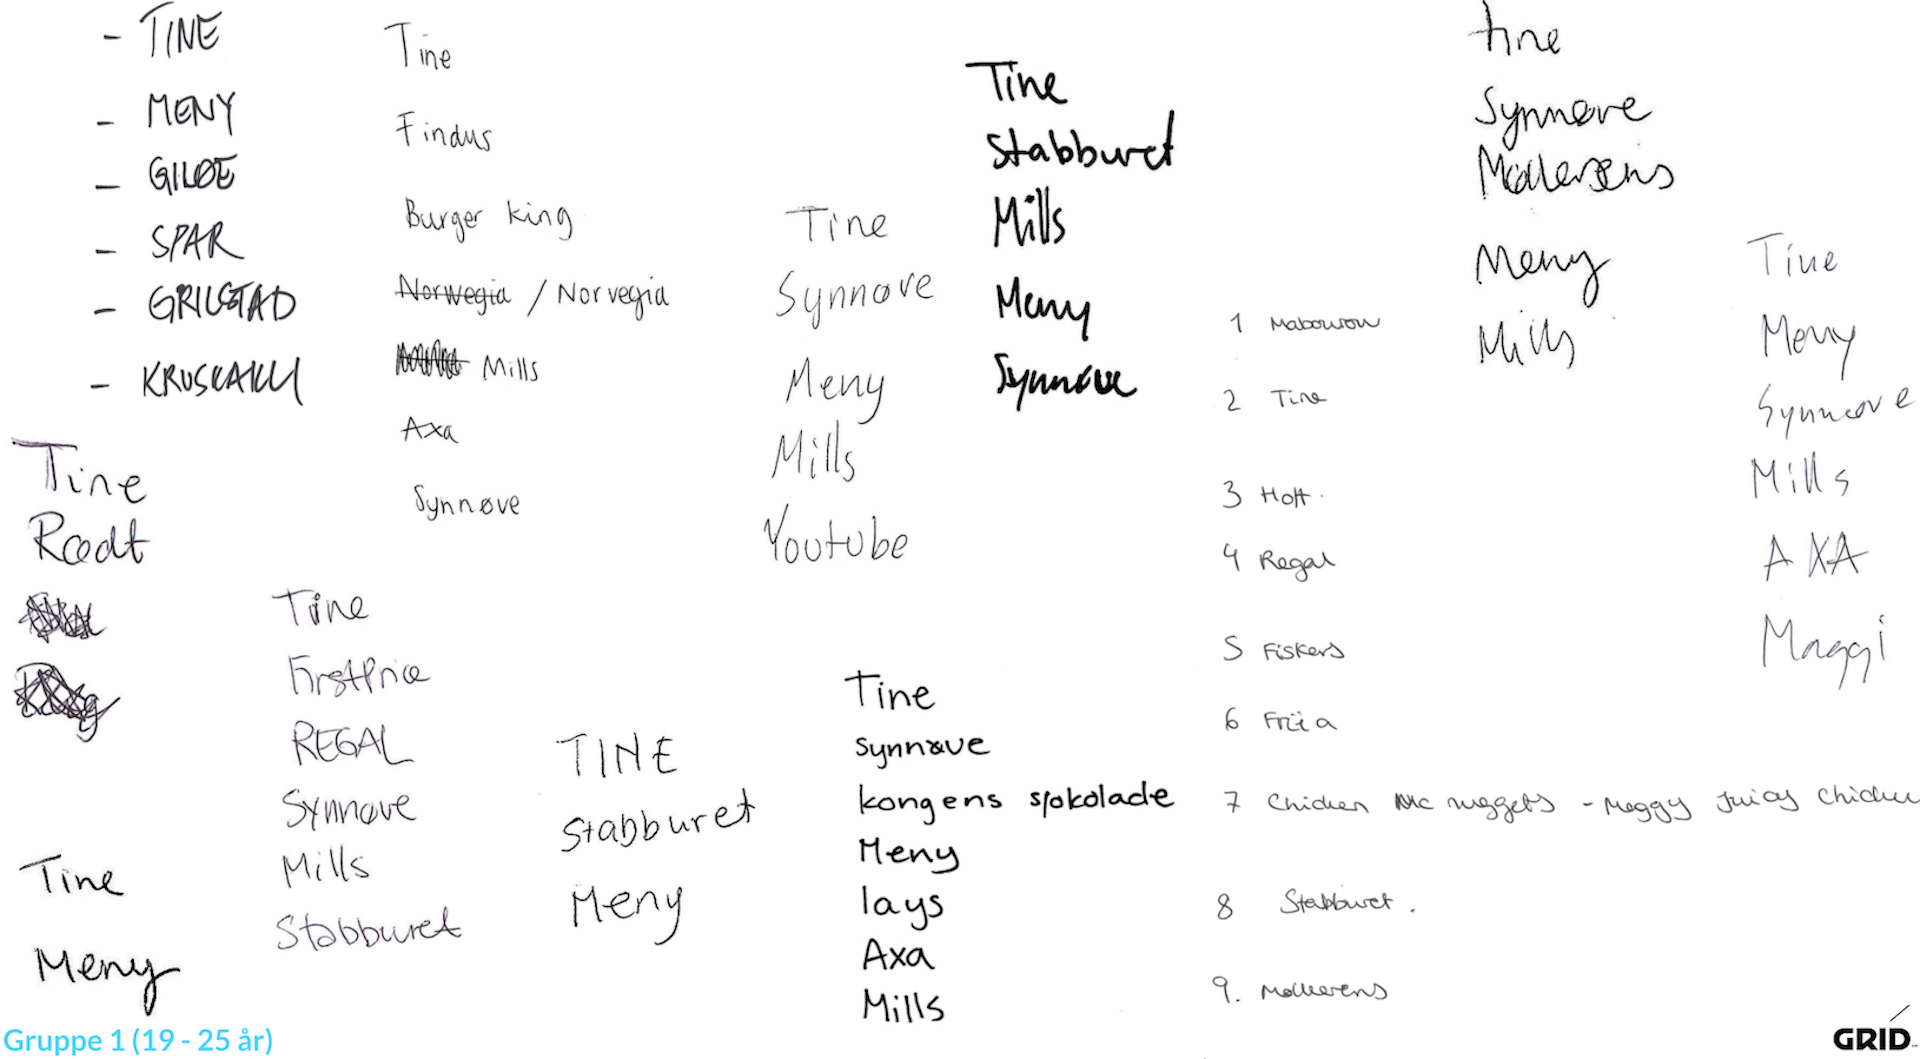 - TINE
- MENY
- GILDE
- SPAR
- GRILSTAD
- KRUSKAKLI
Tine
Findus
Burger king
Norwegia / Norvegia
Mills
Axa
Synnøve
Tine
Synnøve
Meny
Mills
Youtube
Tine
Stabburet
Mills
Meny
Synnøve
tine
Synnøve
Møllerens
Meny
Mills
Tine
Meny
Synnøve
Mills
AXA
Maggi
1
2 Tine
3 Hoff.
4 Regal
5 Fiskers
6 Freia
7 Chicken Mc nuggets - Meggy Juicy Chicken
8 Stabburet.
9. Møllerens
Tine
Rødt
Tine
FirstPrice
REGAL
Synnøve
Mills
Stabburet
TINE
Stabburet
Meny
Tine
synnøve
kongens sjokolade
Meny
lays
Axa
Mills
Tine
Meny
Gruppe 1 (19 - 25 år)
GRID